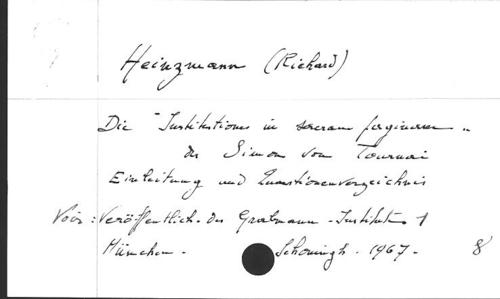 Heinzmann (Richard)
Die "Institutiones in sacram paginam"
des Simon von Tournai
Einleitung und Quaestionenverzeichnis
Voir: Veröffentlich. des Grabmann-Instituts 1
München - Schöningh. 1967. 8